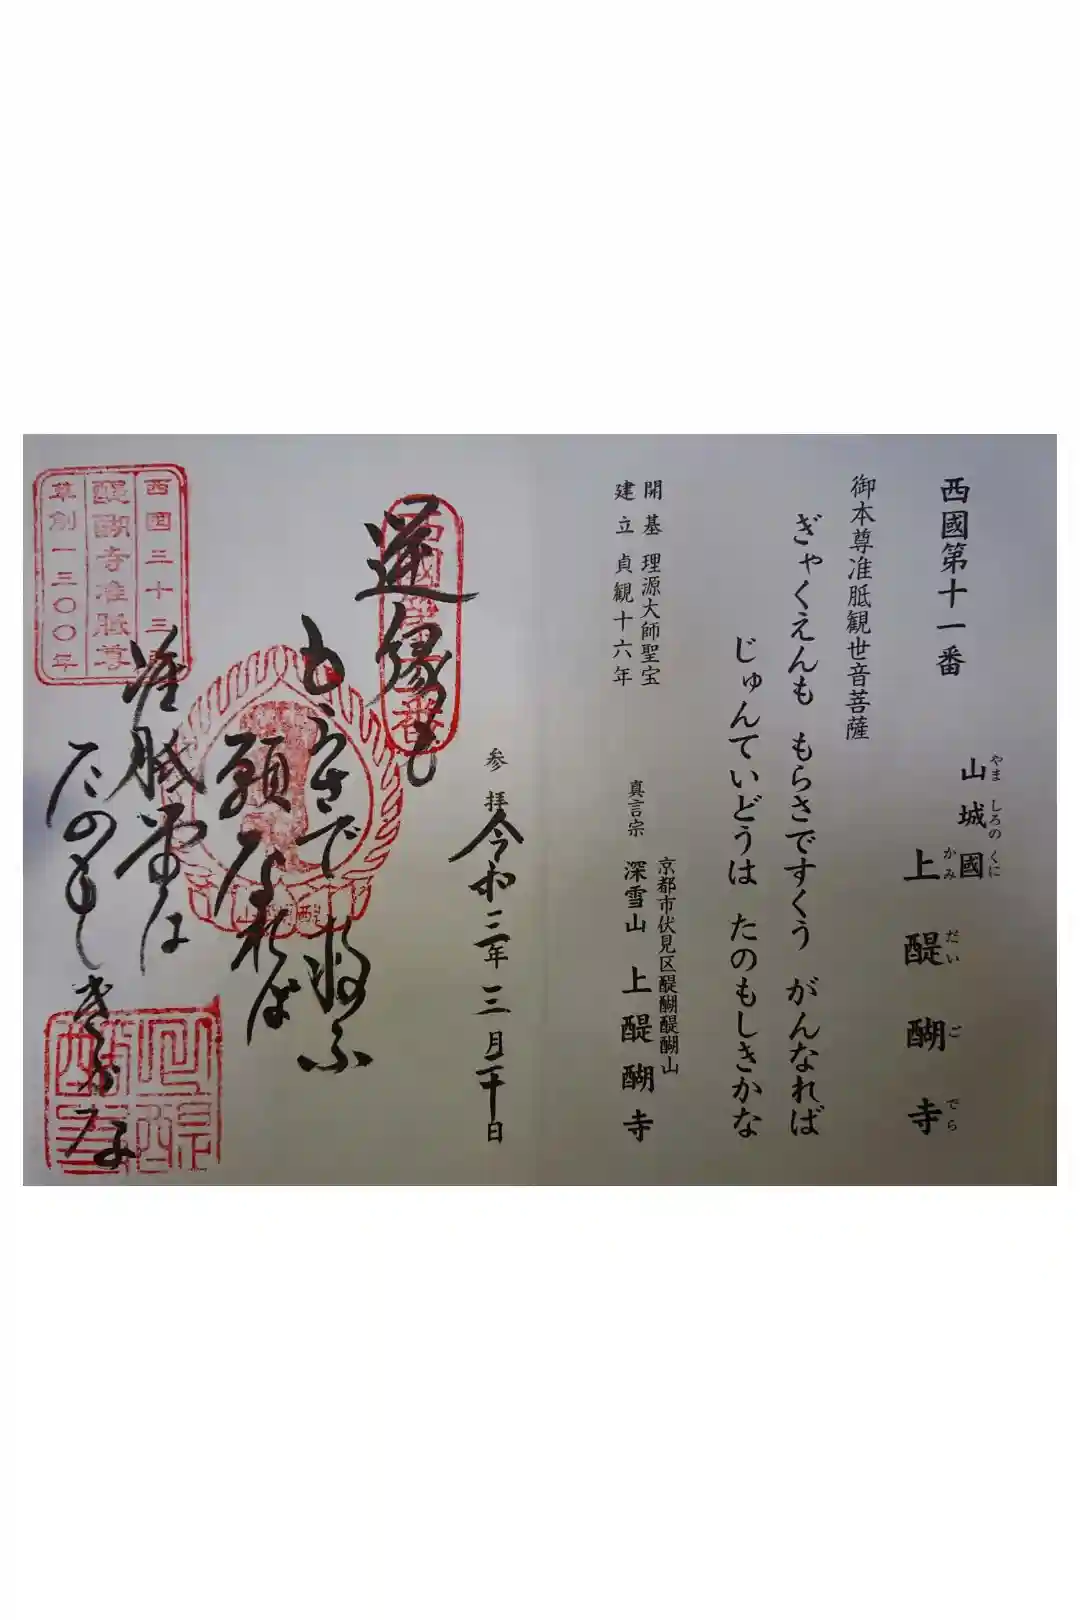 西國第十一番
山城國
やましろのくに
上醍醐寺
かみだいごでら
御本尊准胝観世音菩薩
ぎゃくえんも もらさですくう がんなれば
じゅんていどうは たのもしきかな
開基 理源大師聖宝
建立 貞観十六年
京都市伏見区醍醐醍醐山
真言宗 深雪山 上醍醐寺
参拝 令和三年三月二十日
逆縁も
もらさで救ふ
願なれば
准胝堂は
たのもしきかな
西国三十三所
醍醐寺准胝尊
草創一三〇〇年